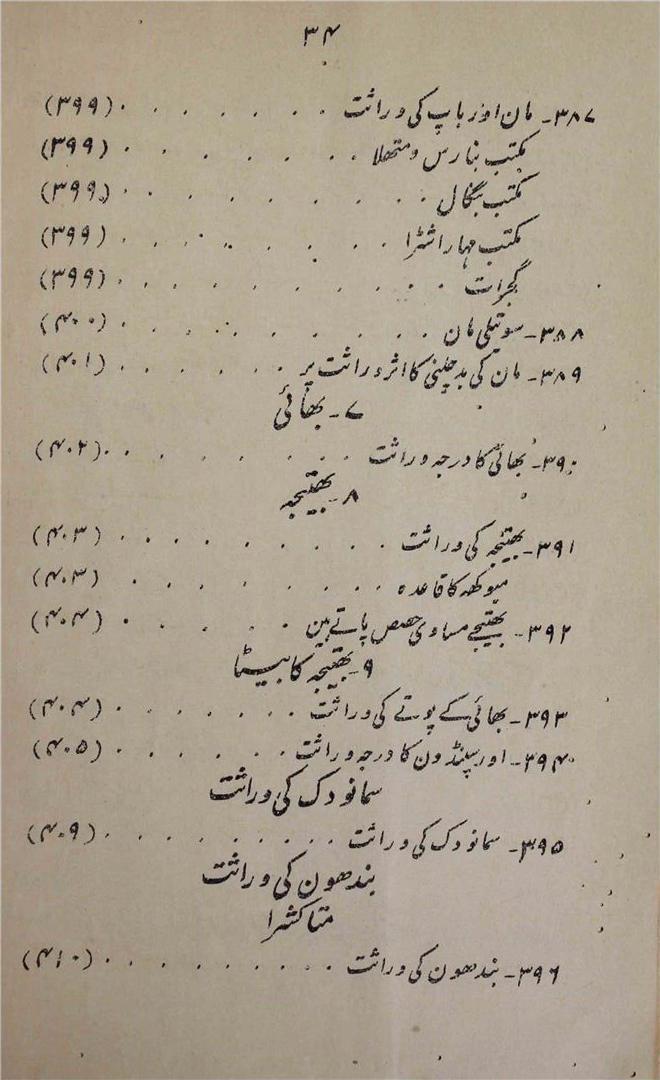 ۳۴
۳۸۷۔ مان اور باپ کی وراثت . . . . . . . (۳۹۹)
مکتب بنارس و متھلا . . . . . . . (۳۹۹)
مکتب بنگال . . . . . . . . . (۳۹۹)
مکتب مہاراشٹرا . . . . . . . (۳۹۹)
گجرات . . . . . . . . . (۳۹۹)
۳۸۸۔ سوتیلی مان . . . . . . . . (۴۰۰)
۳۸۹۔ مان کی بدچلنی کا اثر وراثت پر . . . . . . (۴۰۱)
۷۔ بھائی
۳۹۰۔ بھائی کا درجہ وراثت . . . . . . . . (۴۰۲)
۸۔ بھتیجہ
۳۹۱۔ بھتیجہ کی وراثت . . . . . . . . . (۴۰۳)
میوکھہ کا قاعدہ . . . . . . . . (۴۰۳)
۳۹۲۔ بھتیجے مساوی حصص پاتے ہین . . . . . (۴۰۴)
۹۔ بھتیجہ کا بیٹا
۳۹۳۔ بھائی کے پوتے کی وراثت . . . . . . . (۴۰۴)
۳۹۴۔ اور سپنڈون کا درجہ وراثت . . . . . . . (۴۰۵)
سمانودک کی وراثت
۳۹۵۔ سمانودک کی وراثت . . . . . . . . . (۴۰۹)
بندھون کی وراثت
متاکشرا
۳۹۶۔ بندھون کی وراثت . . . . . . . . . (۴۱۰)